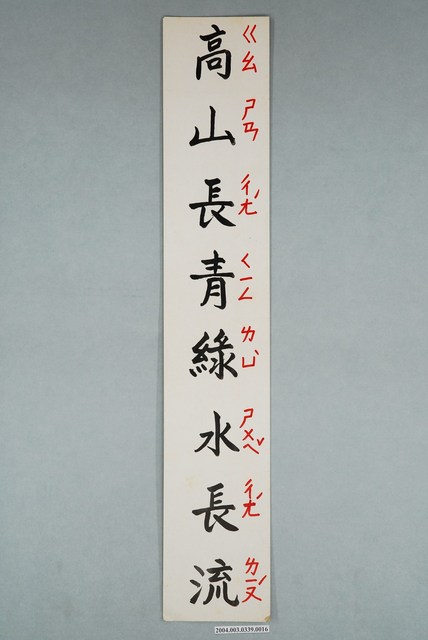 高山長青綠水長流
ㄍㄠ ㄕㄢ ㄔㄤˊ ㄑㄧㄥ ㄌㄩˋ ㄕㄨㄟˇ ㄔㄤˊ ㄌㄧㄡˊ
2004.003.0339.0016